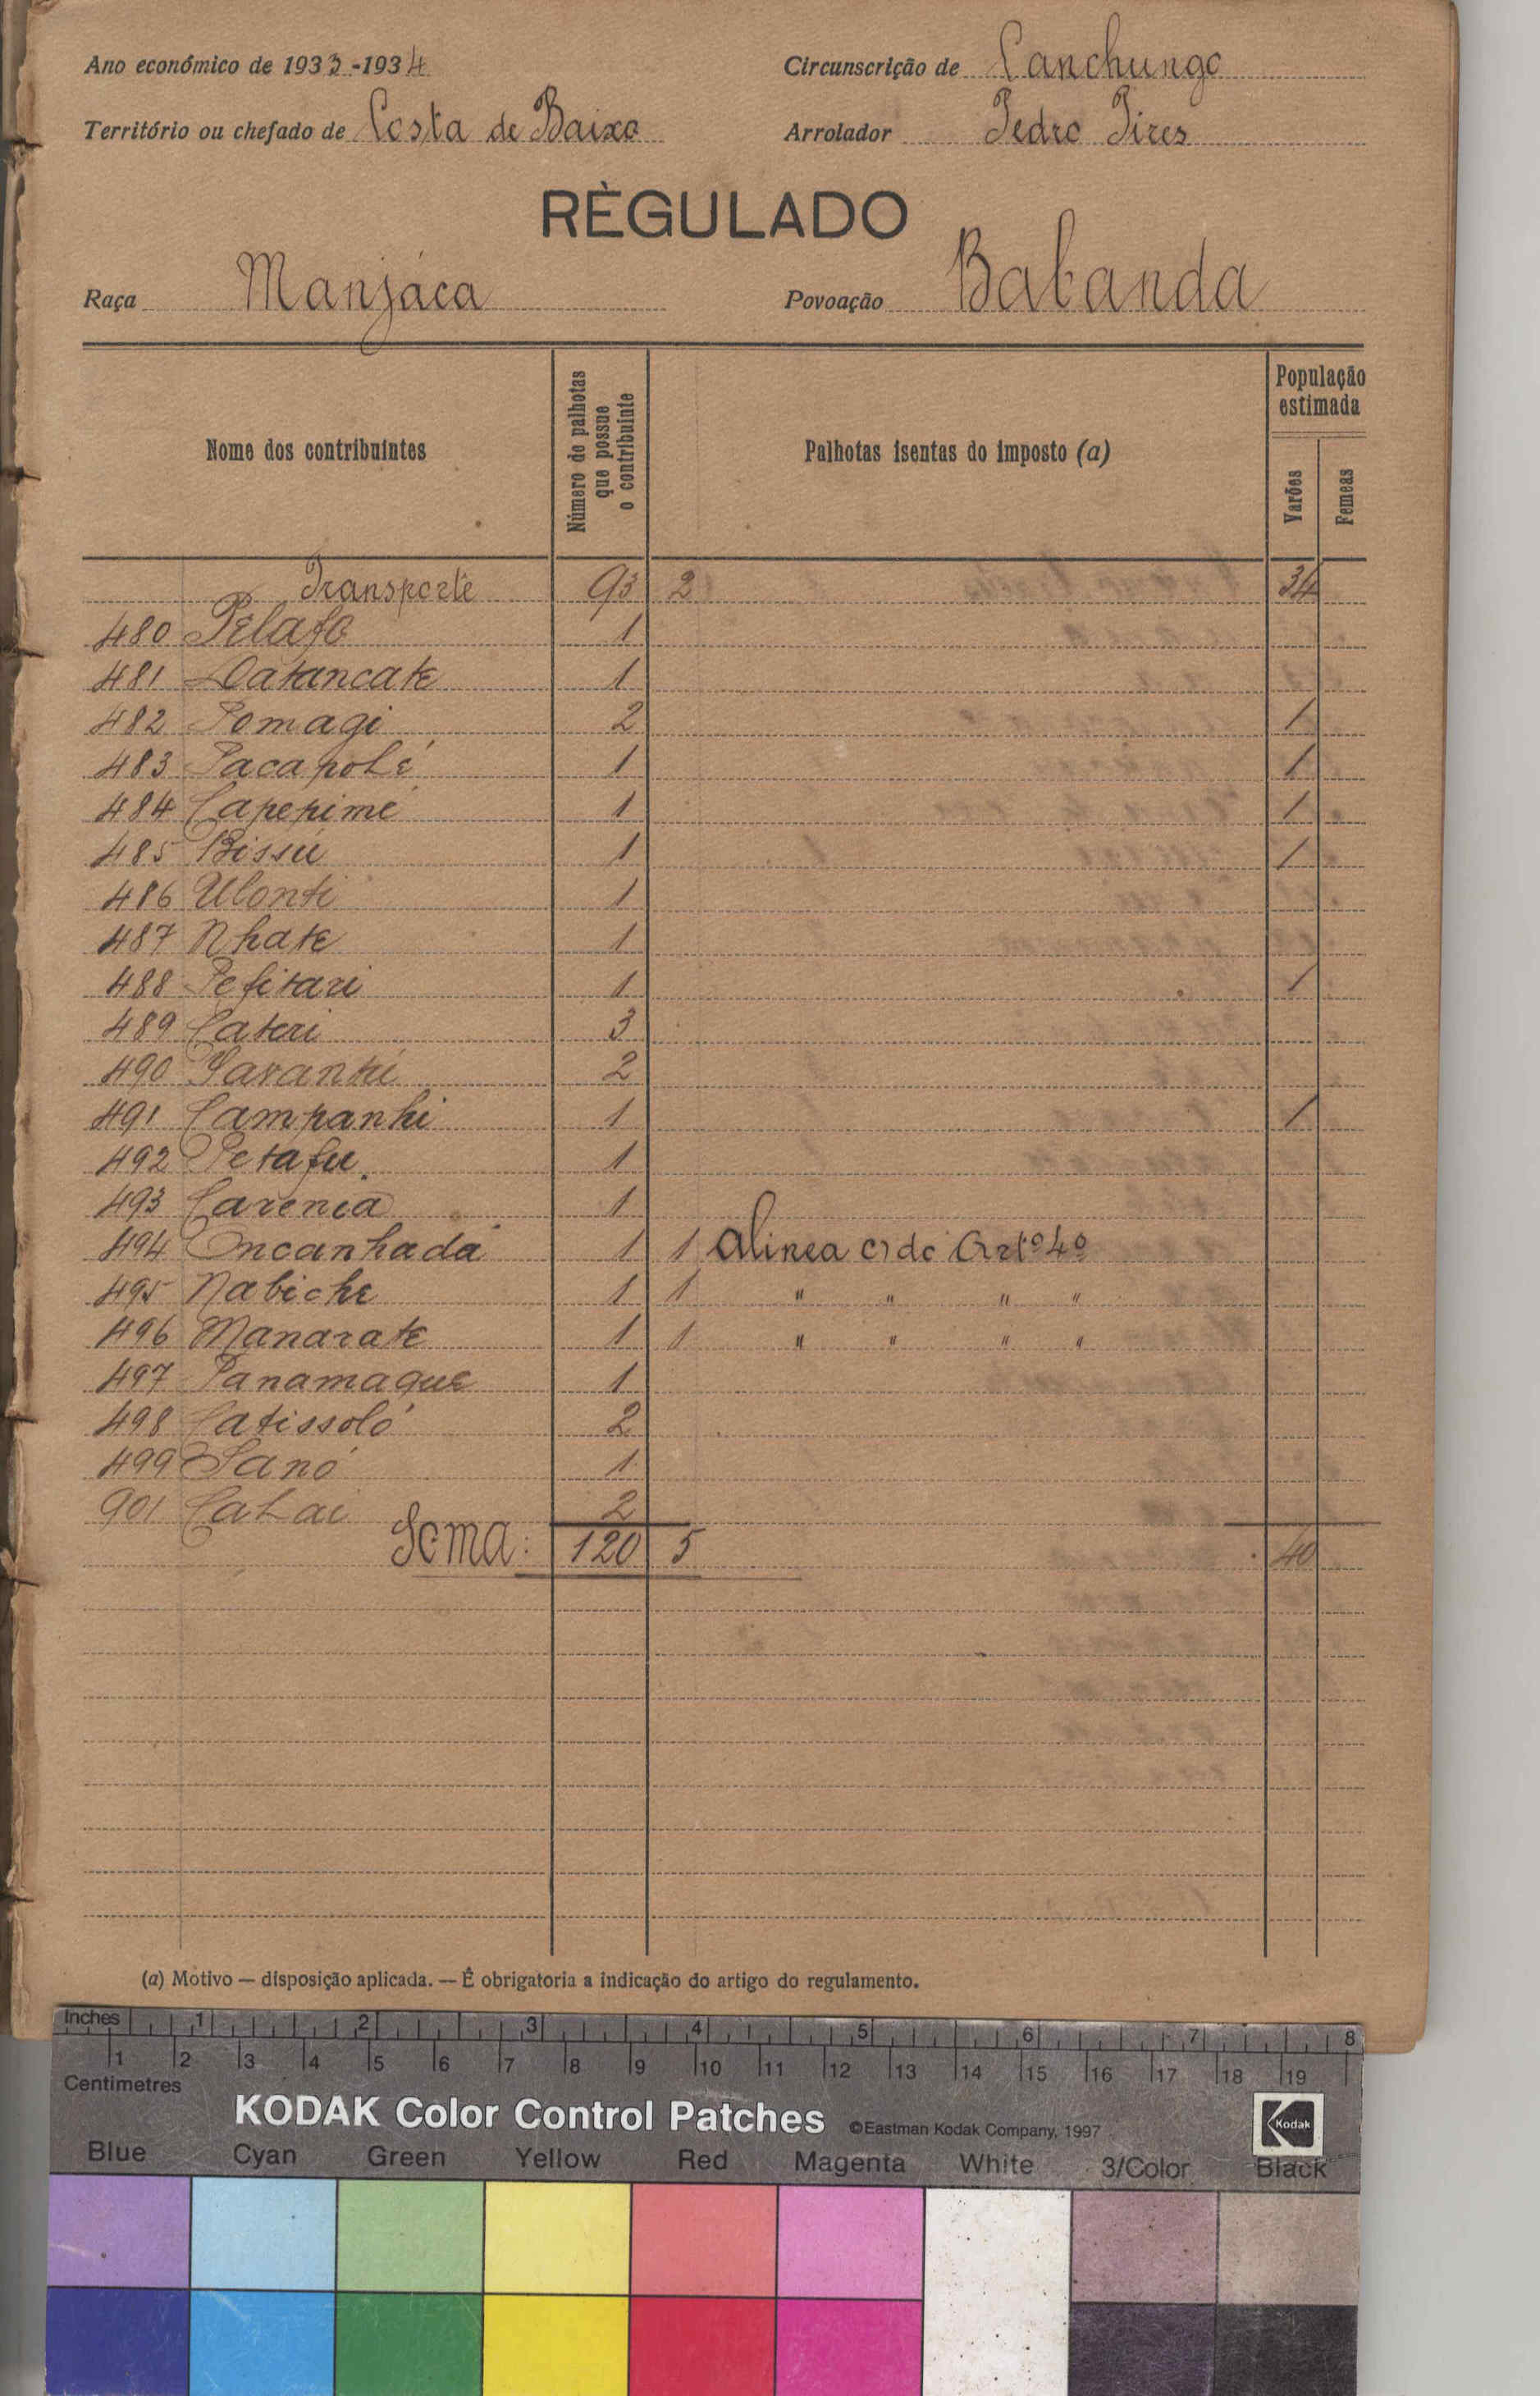 Ano económico de 1933-1934
Circunscrição de Canchungo
Território ou chefado de Costa de Baixo
Arrolador Pedro Pires
RÈGULADO
Raça Manjáca
Povoação Babanda
Nome dos contribuintes
Número de palhotas que possue o contribuinte
Palhotas isentas do imposto (a)
População estimada
Varões
Femeas
Transporte 93 2 34
480 Pelafo 1
481 Datancate 1
482 Pomagi 2 1
483 Pacapolé 1 1
484 Capepimé 1 1
485 Bissú 1 1
486 Ulonti 1
487 Nhate 1
488 Pefitari 1 1
489 Cateri 3
490 2
491 Campanhi 1 1
492 Petafu 1
493 Carenca 1
494 Encanhadá 1 1 Alinea c) do Artº 4º
495 Nabiche 1 1 " " " "
496 Manarate 1 1 " " " "
497 Panamaque 1
498 Catissoló 2
499 Sanó 1
901 Calai 2
Soma: 120 5 40
(a) Motivo — disposição aplicada. — É obrigatoria a indicação do artigo do regulamento.
Inches 1 2 3 4 5 6 7 8
1 2 3 4 5 6 7 8 9 10 11 12 13 14 15 16 17 18 19
Centimetres
KODAK Color Control Patches ©Eastman Kodak Company, 1997 Kodak
Blue Cyan Green Yellow Red Magenta White 3/Color Black